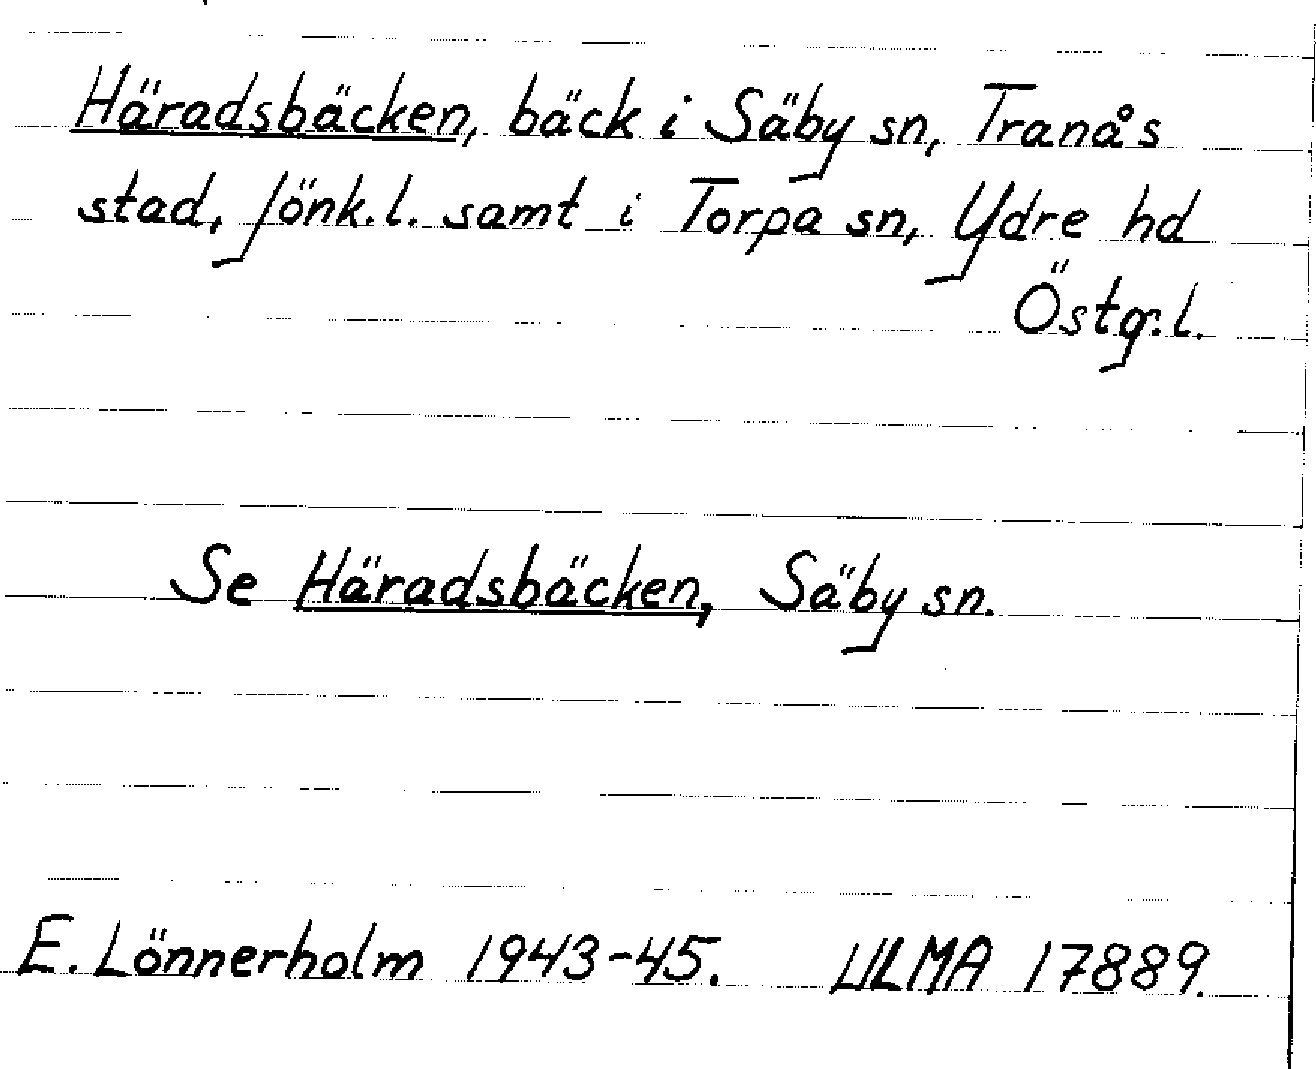 Häradsbäcken, bäck i Säby sn, Tranås
stad, Jönk.l. samt i Torpa sn, Ydre hd
Östg.l.
Se Häradsbäcken, Säby sn.
E. Lönnerholm 1943-45. ULMA 17889.